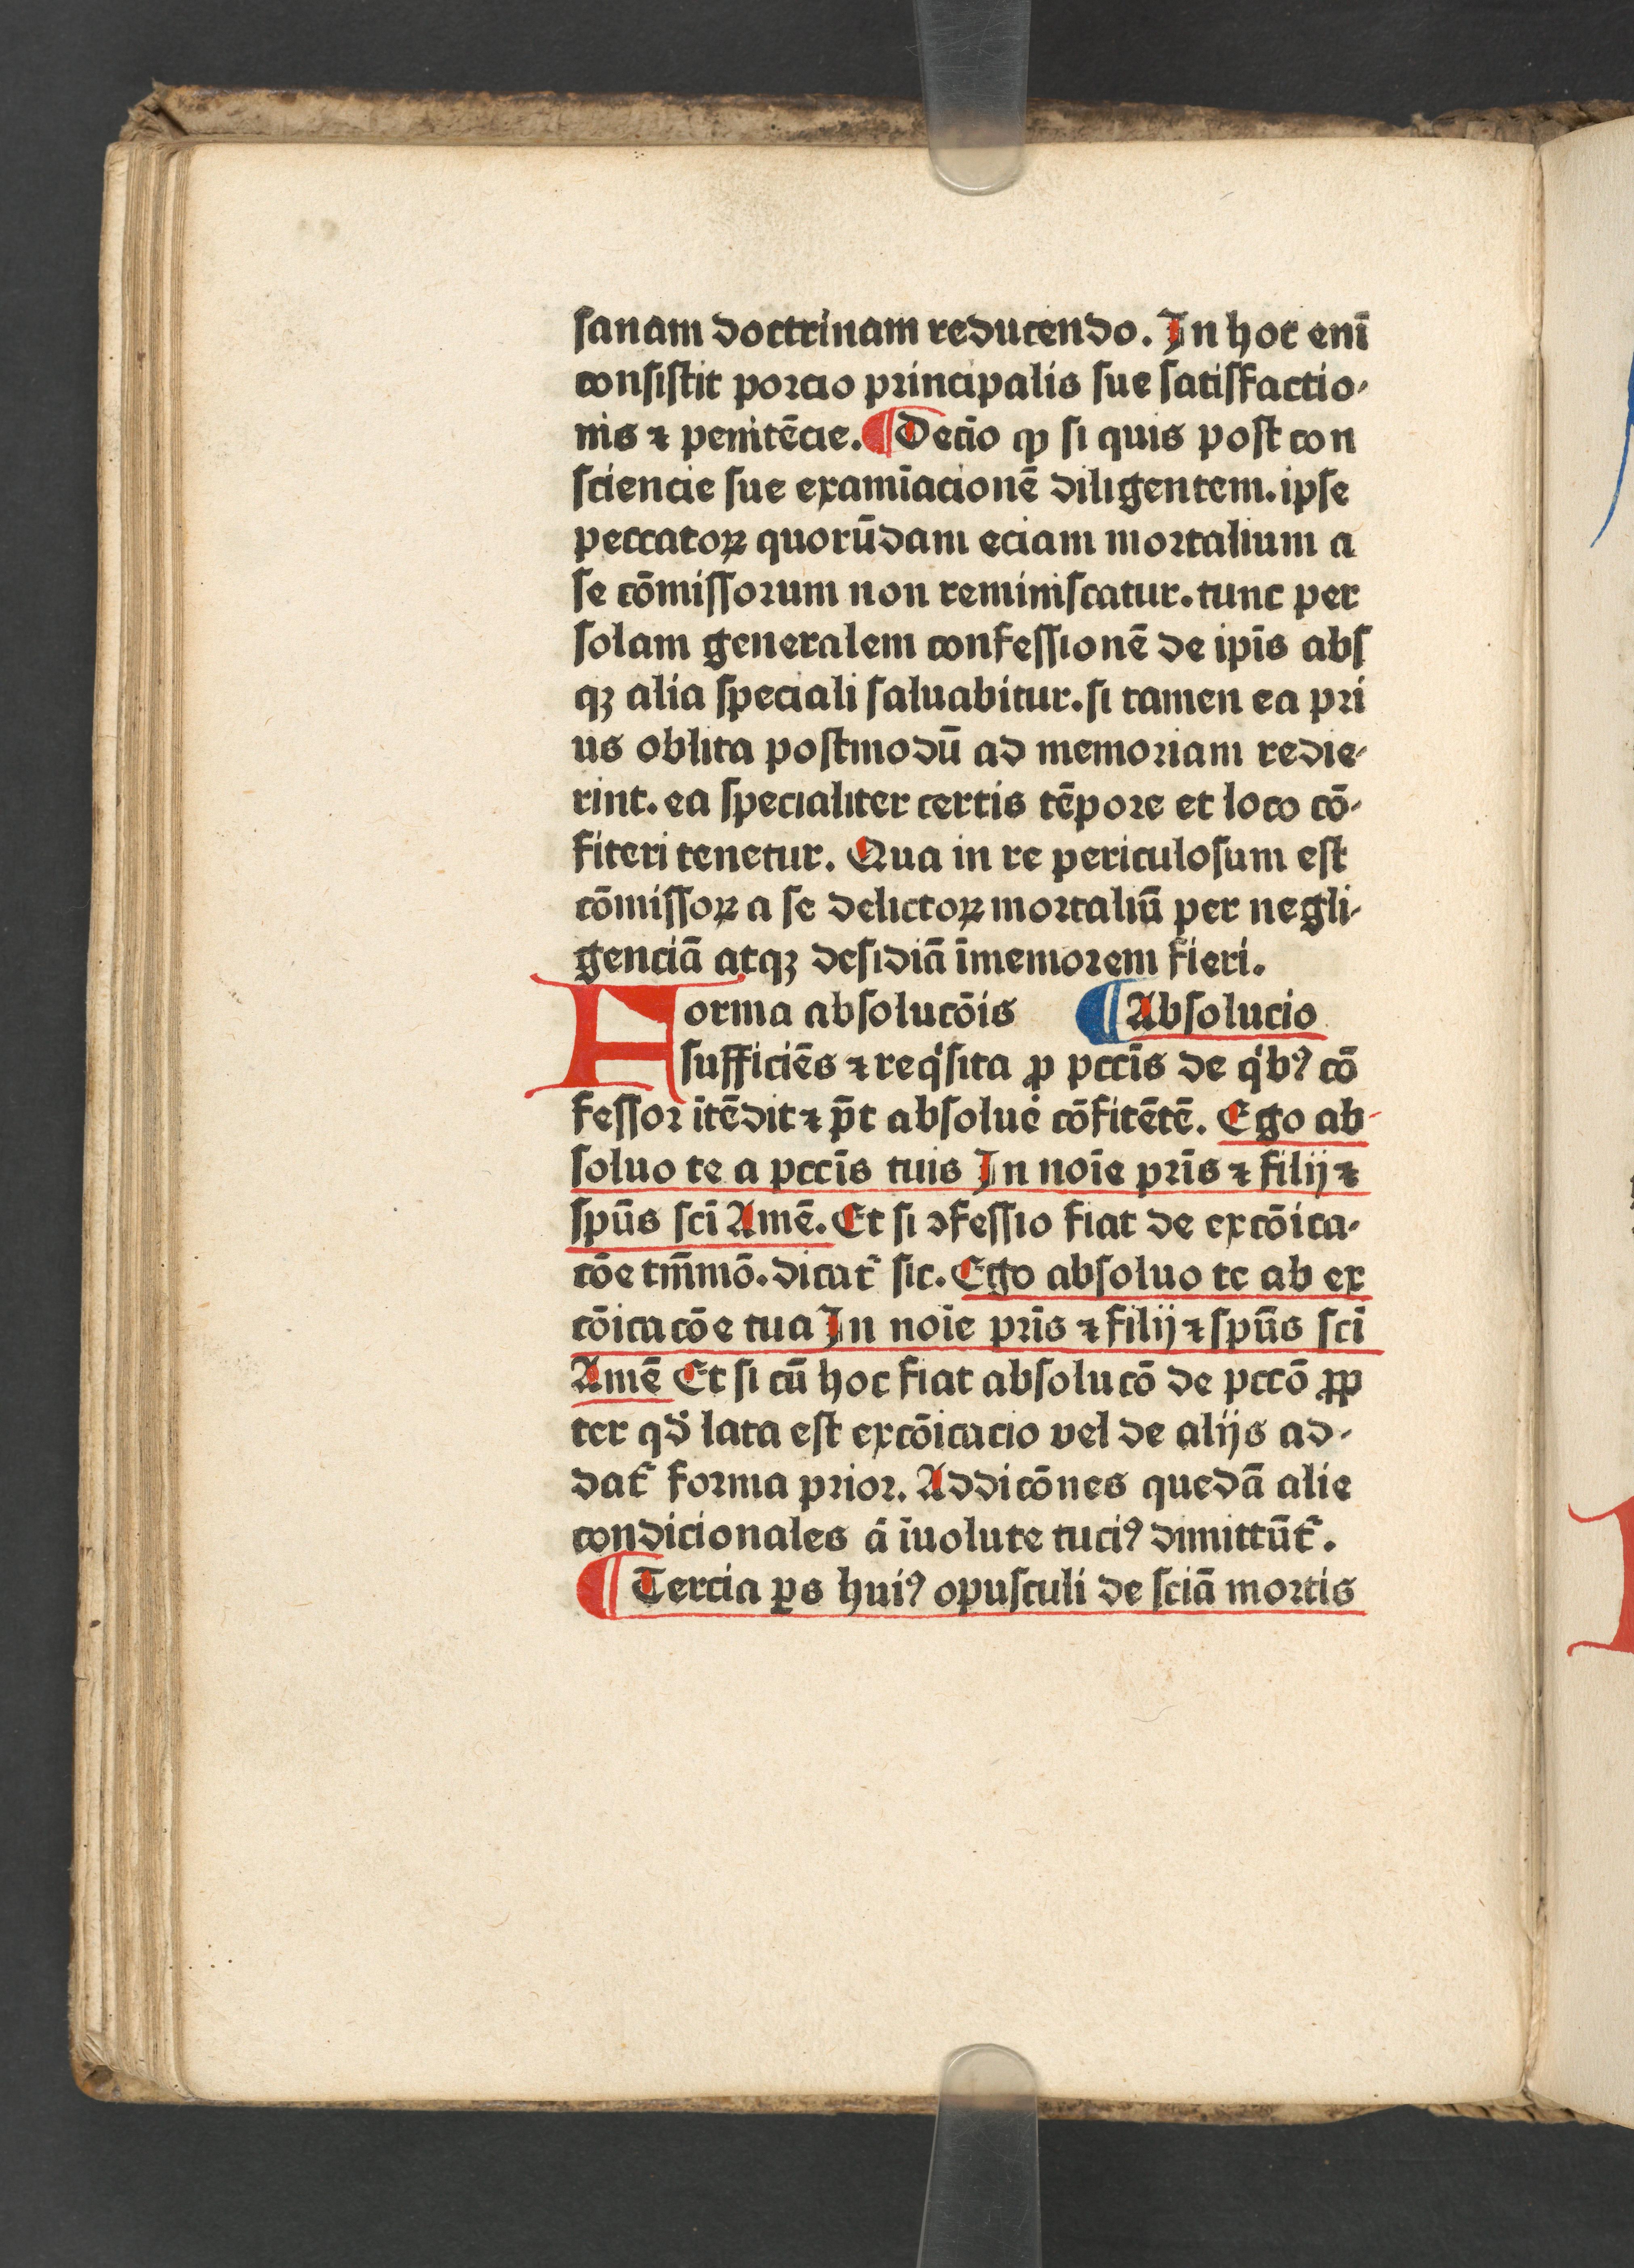 ſanam doctrinam reducendo. In hoc enī
conſiſtit porcio principalis ſue ſatiſfactio-
nis ⁊ penitēcie. ¶ Decīo ꝙ ſi quis poſt con
ſciencie ſue examīacionē diligentem. ipſe
peccatoꝝ quorūdam eciam mortalium a
ſe cōmiſſorum non reminiſcatur. tunc per
ſolam generalem confeſſionē de ipīs abſ
qꝫ alia ſpeciali ſaluabitur. ſi tamen ea pri
us oblita poſtmodū ad memoriam redie-
rint. ea ſpecialiter certis tēpore et loco cō-
fiteri tenetur. Qua in re periculoſum eſt
cōmiſſoꝝ a ſe delictoꝝ mortaliū per negli-
genciā atqꝫ deſidiā īmemorem fieri.
Forma abſolucōis ¶ Abſolucio
ſufficiēs ⁊ reqͥſita ꝓ pccīs de qͥbꝰ cō
feſſor ītēdit ⁊ pt̄ abſolue᷑ cōfitētē. Ego ab-
ſoluo te a pccīs tuis In noīe prīs ⁊ filij ⁊
ſpūs ſcī Amē. Et ſi ↄfeſſio fiat de excōica-
cōe tm̄mō. dicat᷑ ſic. Ego abſoluo te ab ex
cōicacōe tua In noīe prīs ⁊ filij ⁊ ſpūs ſcī
Amē Et ſi cū hoc fiat abſolucō de pccō ꝓp
ter qd̄ lata eſt excōicacio vel de alijs ad-
dat᷑ forma prior. Addicōnes quedā alie
condicionales ā īuolute tuciꝰ dimittūt᷑.
¶ Tercia ꝑs huiꝰ opuſculi de ſciā mortis